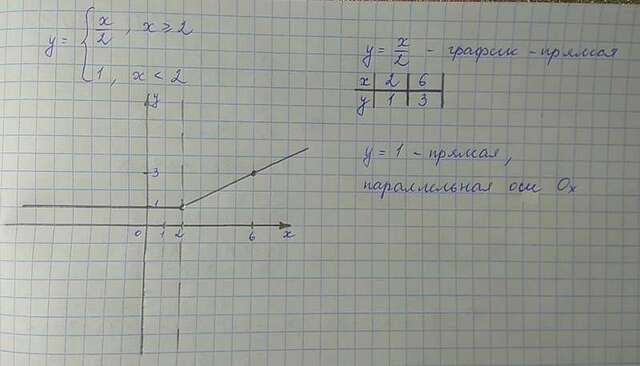 y = { x/2, x ≥ 2
1, x < 2
y = x/2 - график - прямая
x 2 6
y 1 3
y = 1 - прямая,
параллельная оси Ox
y
3
1
0 1 2 6 x